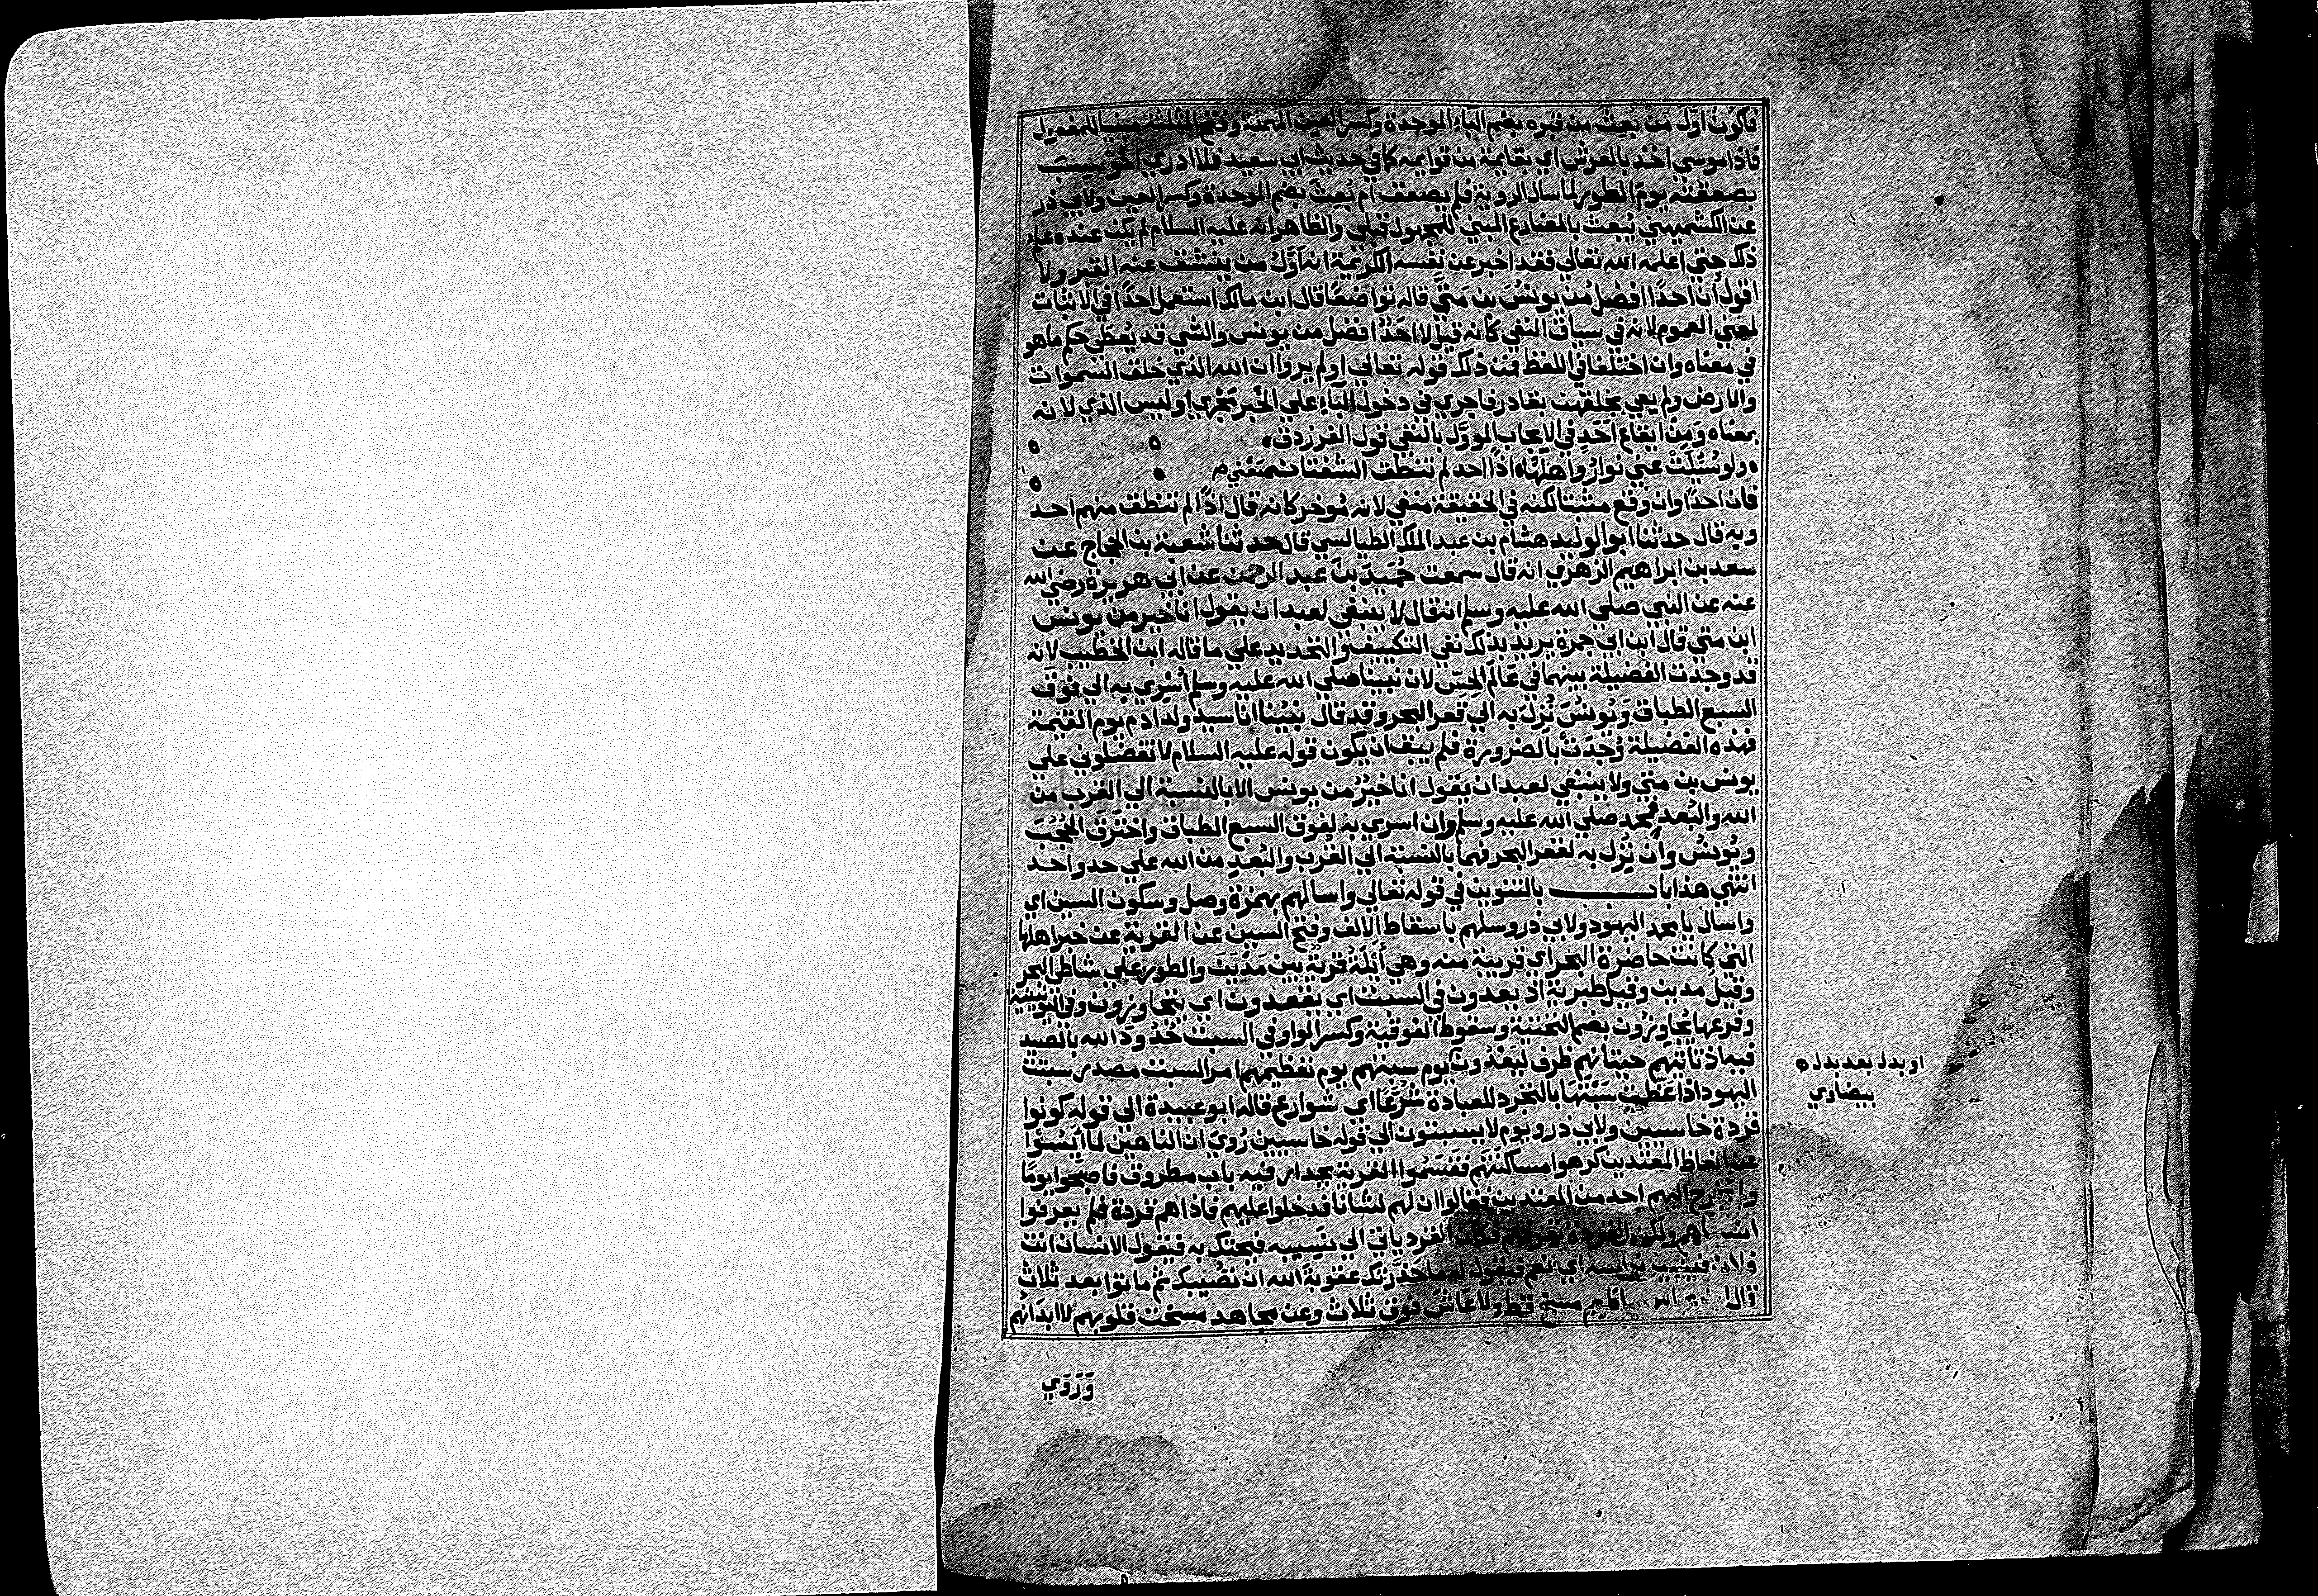 فاكون اوّل من بُعِثَ من قبره بضم الباء الموحدة وكسر العين المهملة وفتح المثلثة مبنيا للمفعول
فاذا موسي اخذ بالعرش اي بقايمة من قوايمه كما في حديث ابي سعيد فلا ادري احُوْسِبَ
بصعقته يوم الطور لما سال الروية فلم يصعق ام بُعِثَ بضم الموحدة وكسر العين ولابي ذر
عن الكشميهني يُبعث بالمضارع المبني للمجهول قبلي والظاهر انه عليه السلام لم يكن عنده علم
ذلك حتي اعلمه الله تعالي فقد اخبر عن نفسه الكريمة انه اوّل من ينشق عنه القبر ولا
اقول ان احدًا افضل من يونس بن متّي قاله تواضعًا قال ابن مالك استعمل احدًا في الاثبات
لمعني العموم لانه في سياق النفي كانه قيل لا احدٌ افضل من يونس والشي قد يُعطَي حكم ما هو
في معناه وان اختلفا في اللفظ فمن ذلك قوله تعالي اولم يروا ان الله الذي خلق السموات
والارض ولم يعي بخلقهن بقادر فاجري في دخول الباء علي الخبر مجري اوليس الذي لانه
بمعناه وَمِنْ ايقاع اَحَدٍ في الايجاب الموؤل بالنفي قول الفرزدق
ولو سُئِلَتْ عني نوارُ واهلها اذًا احد لم تنطق الشفتان
فان احدًا وان وقع مثبتا لكنه في الحقيقة منفي لانه مُوخر كانه قال اذًا لم تنطق منهم احد
وبه قال حدثنا ابو الوليد هشام بن عبد الملك الطيالسي قال حدثنا شعبة بن الحجاج عن
سعد بن ابراهيم الزهري انه قال سمعت حُمَيدَ بنَ عبد الرحمن عن ابي هريرة رضي الله
عنه عن النبي صلي الله عليه وسلم انه قال لا ينبغي لعبد ان يقول انا خير من يونس
ابن متي قال ابن ابي جمرة يريد بذلك نفي التكييف والتحديد علي ما قاله ابن الخطيب لانه
قد وجدت الفضيلة بينهما في عَالَم الحِسّ لان نبينا صلي الله عليه وسلم اُسْرِي به الي فوق
السبع الطباق وَيُونُسَ نُزِلَ به الي قعر البحر وقد قال نبيُنا انا سيد ولد ادم يوم القيمة
فهذه الفضيلة وُجِدَتْ بالضرورة فلم يبق ان يكون قوله عليه السلام لا تفضلوني علي
يونس بن متي ولا ينبغي لعبد ان يقول انا خيرٌ من يونس الا بالنسبة الي القرب من
الله والبُعد فمحمد صلي الله عليه وسلم وان اسري به لفوق السبع الطباق واخترق الحُجُبَ
ويُونس وان نُزِل به لقعر البحر فهما بالنسبة الي القرب والبُعدِ من الله علي حد واحد
انتهي هذا باب بالتنوين في قوله تعالي واسالهم بهمزة وصل وسكون السين اي
واسال يا محمد اليهود ولابي ذر وسلهم باسقاط الالف وفتح السين عن القرية عن خبر اهلها
التي كانت حاضرة البحر اي قريبة منه وهي أَيْلَةُ قرية بين مَدْيَنَ والطور علي شاطي البحر
وقيل مدين وقيل طبرية اذ يعدون في السبت اي يقصدون اي يتجاوزون وفي اليونينية
وفرعها يُجاوِزُون بضم التحتية وسقوط الفوقية وكسر الواو في السبت حُدُودَ الله بالصيد
فيه اذ تاتيهم حيتانهم ظرف ليَعْدُونَ يوم سبتهم يوم تعظيمهم امر السبت مصدر سبتت
اليهود اذا عَظّمت سَبْتَهَا بالتجرد للعبادة شُرَّعًا اي شوارع قاله ابو عبيدة الي قوله كونوا
قردة خاسيين ولابي ذر ويوم لا يسبتون الي قوله خاسيين رُويَ ان الناهين لما اَيِسُوا
عن اتعاظ المعتدين كرهوا مساكنتهم فقسّمُوا القرية بجدار فيه باب مطروق فاصبحوا يومًا
ولم يخرج اليهم احد من المعتدين فقالوا ان لهم لشانا فدخلوا عليهم فاذا هم قردة فلم يعرفوا
انسباهم ولكن القردة تعرفهم فكان القرد ياتي الي نَسِيبِه فيحتك به فيقول الانسان انت
فلان فيشير براسه اي نعم فيقول له ما حَذّرتك عقوبةَ الله ان تصيبك ثم ماتوا بعد ثلاث
قال مسخ قط ولا عَاشَ فوق ثلاث وعن مجاهد مسخت قلوبهم لا ابدانهم
وَرَوَي
او بدل بعد بدل ه
بيضاوي